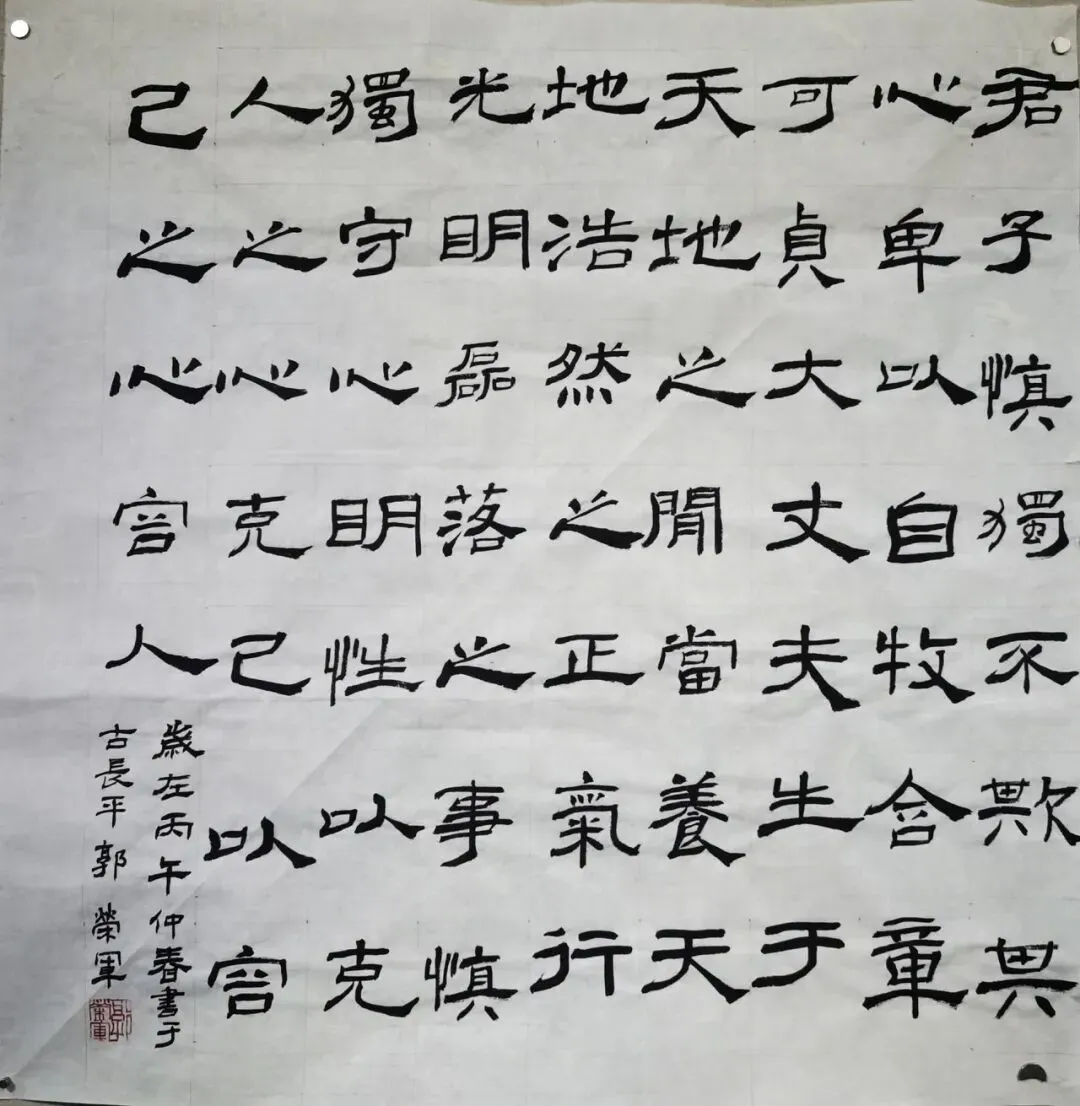 君子慎獨不欺其
心卑以自牧含章
可貞大丈夫生于
天地之閒當養天
地浩然之正氣行
光明磊落之事慎
獨守心明性以克
人之心克己以容
己之心容人
歲在丙午仲春書于
古長平郭榮軍